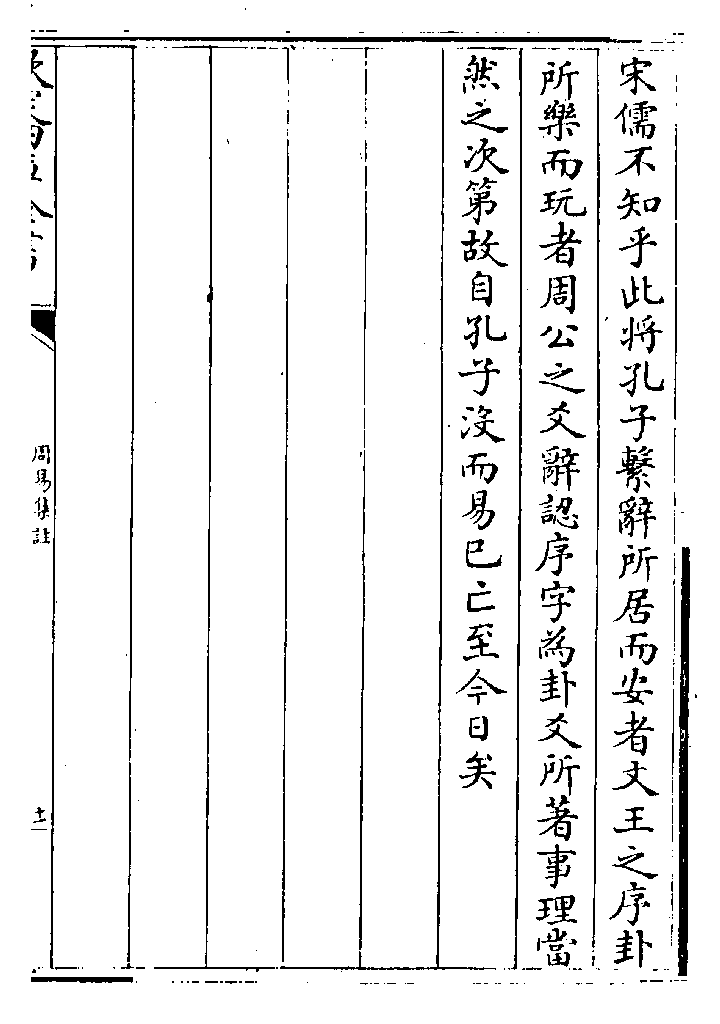 宋儒不知乎此將孔子繫辭所居而安者文王之序卦
所樂而玩者周公之爻辭認序字為卦爻所著事理當
然之次第故自孔子沒而易已亡至今日矣
周易集註
十一